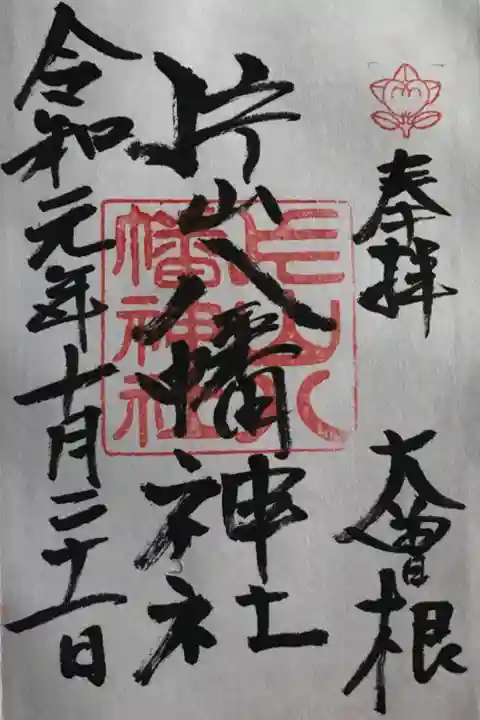 奉拝
大曾根
片山八幡神社
片山八
幡神社
令和元年十月二十一日